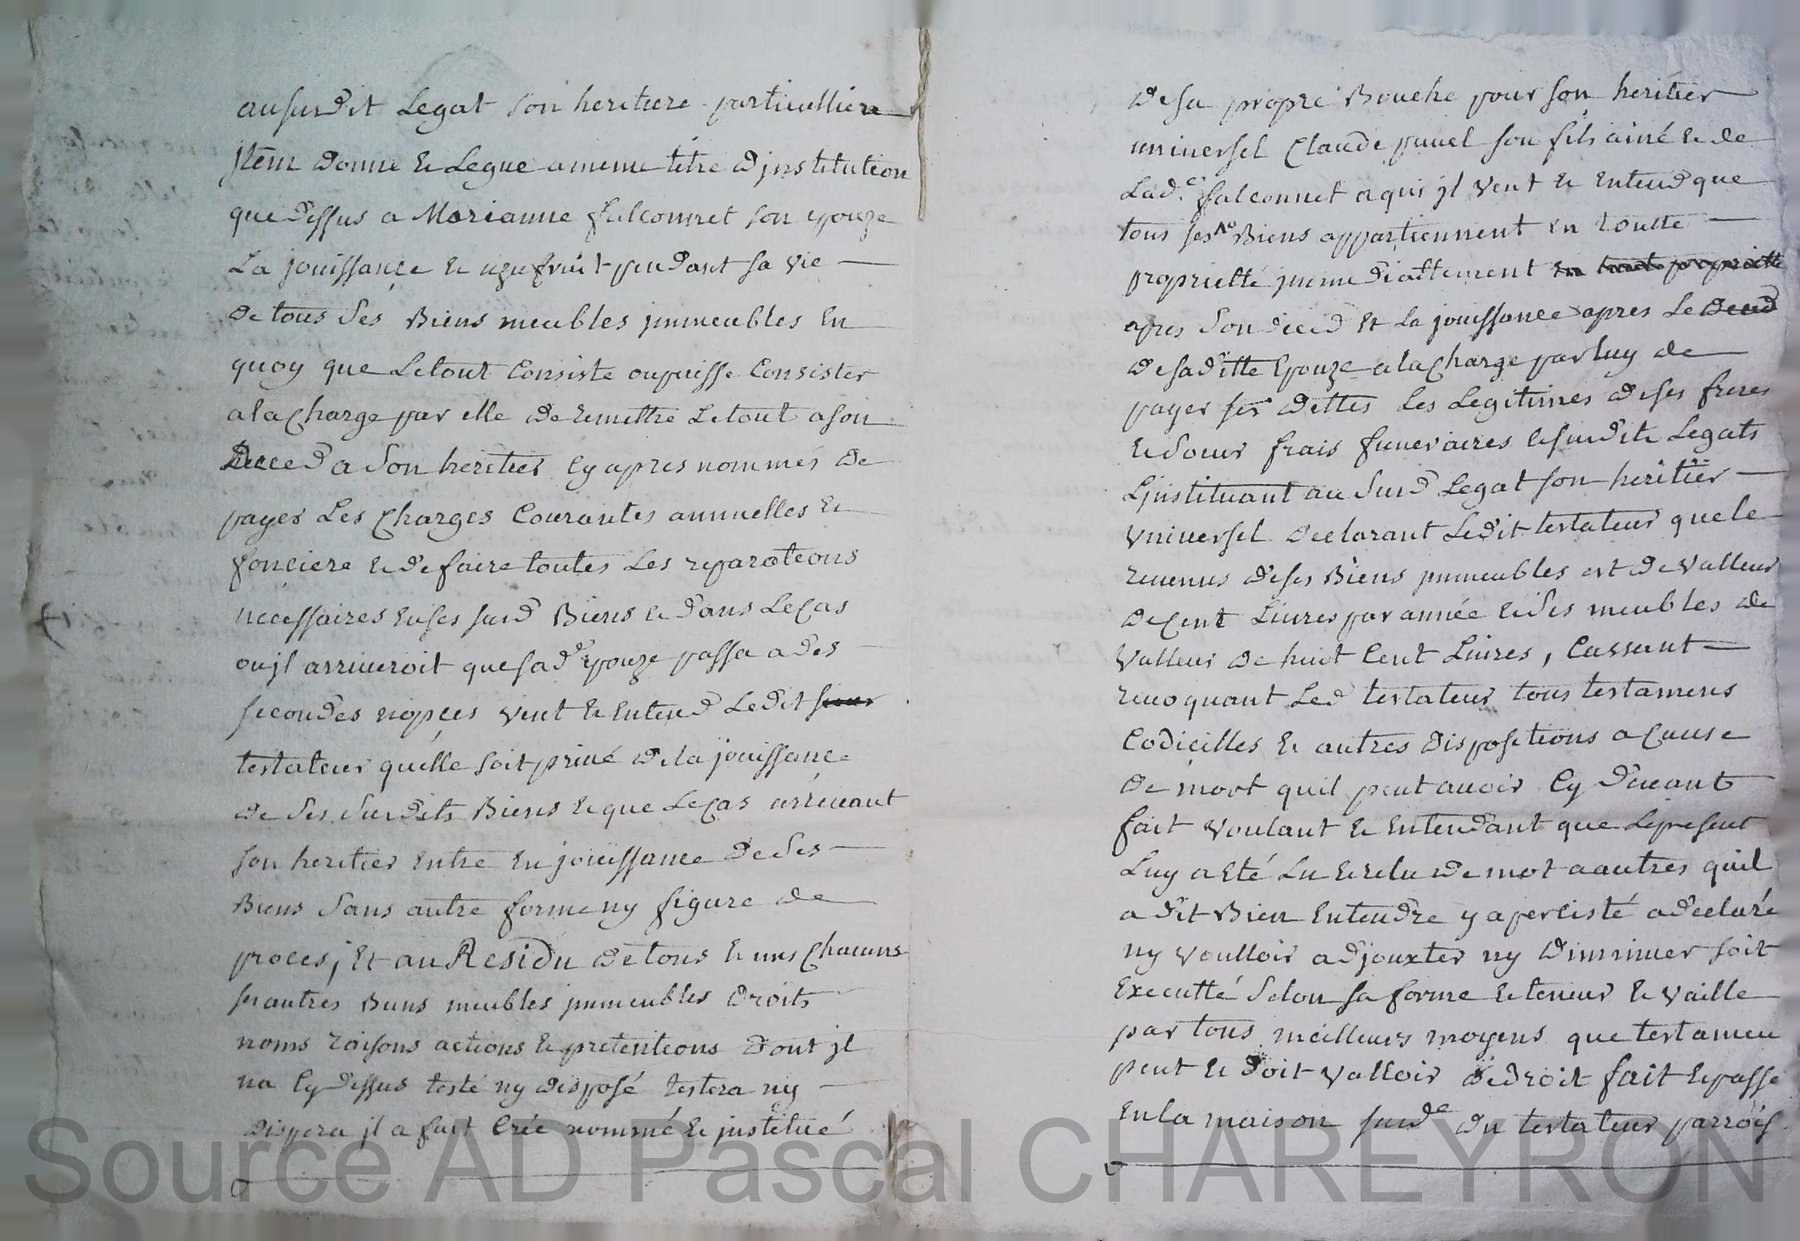 ausurdit Legat son heritiere particulliere
jtem donne et Legue a meme titre d'institution
que dessus a Marianne falconnet son epouze
La jouissance et uzufruit pendant sa vie
de tous ses Biens meubles jmmeubles En
quoy que Letout Consiste oupuisse Consister
a la Charge par elle de remettre Letout a son
Deced a son heritier Cy apres nommés de
payer Les Charges Courantes annuelles et
fonciere et de faire toutes Les reparations
necessaires en ses surd Biens et dans Le Cas
ou jl arriveroit que sa de Epouze passa a des
secondes nopces veut et Entend Ledit
testateur quelle soit privé de la jouissance
de ses surdits Biens et que Le Cas arrivant
son heritier Entre En jouissance de ses
Biens sans autre forme ny figure de
proces; Et au Residu de tous et uns Chacuns
ses autres Biens meubles jmmeubles droits
noms raisons actions et pretentions dont jl
na Cy dessus testé ny disposé testera ny
dispera jl a fait Créé nommé et jnstitué
de sa propre Bouche pour son heritier
universel Claude pauel son fils ainé et de
Lad.e falconnet a qui jl veut et Entend que
tous ses Biens appartiennent En toutte
proprietté jmmediattement En toutte proprietté
apres son deced Et La jouissance apres Le Deced
de sa ditte Epouze a la Charge par luy de
payer ses dettes Les Legitimes de ses freres
et Soeur frais funeraires et surdits Legats
L'jnstituant au surd Legat son heritier
Universel declarant Ledit testateur que le
revenus de ses Biens jmmeubles est de valleur
de Cent Livres par année et ses meubles de
valleur de huit Cent Livres, Cassant
revoquant Led testateur tous testamens
Codicilles et autres dispositions a Cause
de mort quil peut avoir Cy devant
fait voulant et Entendant que Le present
Luy a Eté Lu et relu de mot a autres quil
a dit Bien Entendre y a percisté a declaré
ny voulloir adjouxter ny diminuer soit
Executté selon sa forme et teneur et vaille
par tous meilleurs moyens que testamen
peut et doit valloir de droit fait et passé
En la maison surde du testateur parrois
Source AD Pascal CHAREYRON